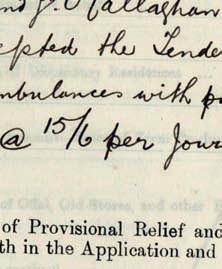 and J. O'Callaghan
epted the Tender
mbulances with p
@ 15/6 per Jour
of Offal, Old Stores, and other
of Provisional Relief and
th in the Application and